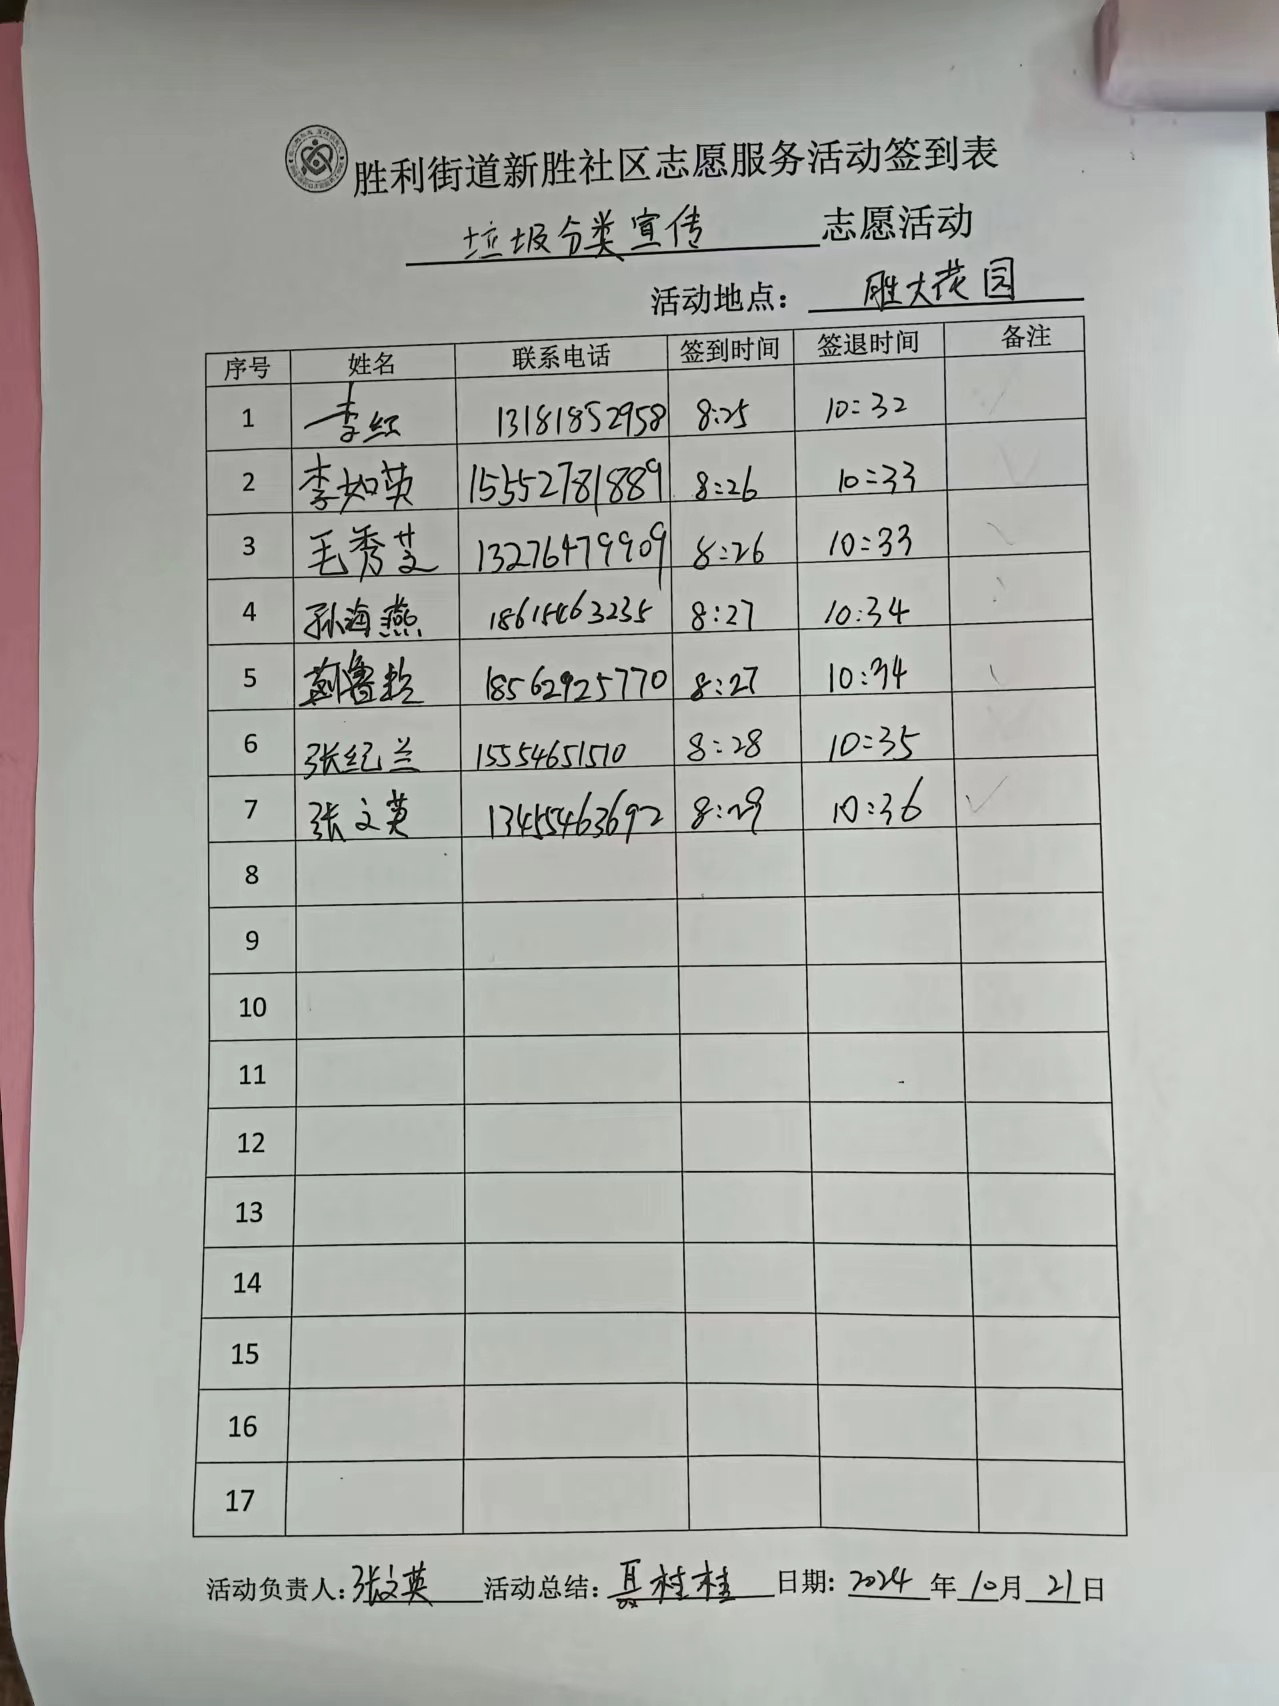 胜利街道新胜社区志愿服务活动签到表
垃圾分类宣传 志愿活动
活动地点： 胜大花园
序号 姓名 联系电话 签到时间 签退时间 备注
1 李红 13181852958 8:25 10:32
2 李如英 15552781889 8:26 10:33
3 毛秀芝 13276479909 8:26 10:33
4 孙海燕 18615463235 8:27 10:34
5 18562925770 8:27 10:34
6 张纪兰 15554651510 8:28 10:35
7 张文英 13455463692 8:29 10:36
8
9
10
11
12
13
14
15
16
17
活动负责人：张文英 活动总结： 桂桂 日期：2024 年 10 月 21 日